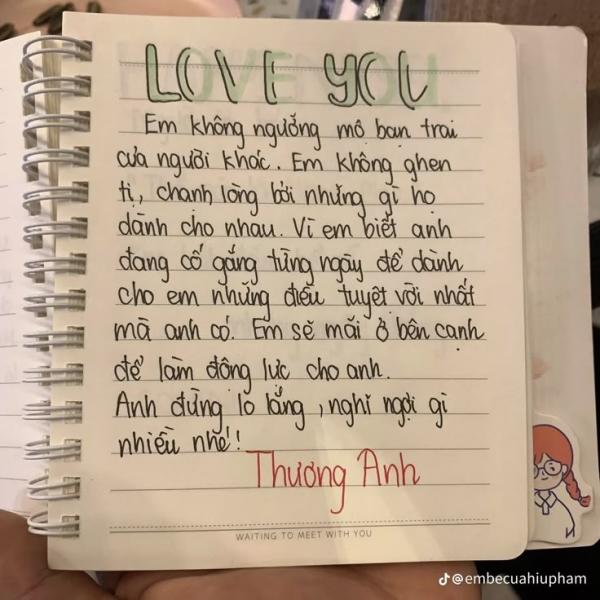 LOVE YOU
Em không ngưỡng mộ bạn trai
của người khác. Em không ghen
tị, chạnh lòng bởi những gì họ
dành cho nhau. Vì em biết anh
đang cố gắng từng ngày để dành
cho em những điều tuyệt vời nhất
mà anh có. Em sẽ mãi ở bên cạnh
để làm động lực cho anh.
Anh đừng lo lắng, nghĩ ngợi gì
nhiều nhé!
Thương Anh
WAITING TO MEET WITH YOU
@embecuahiupham